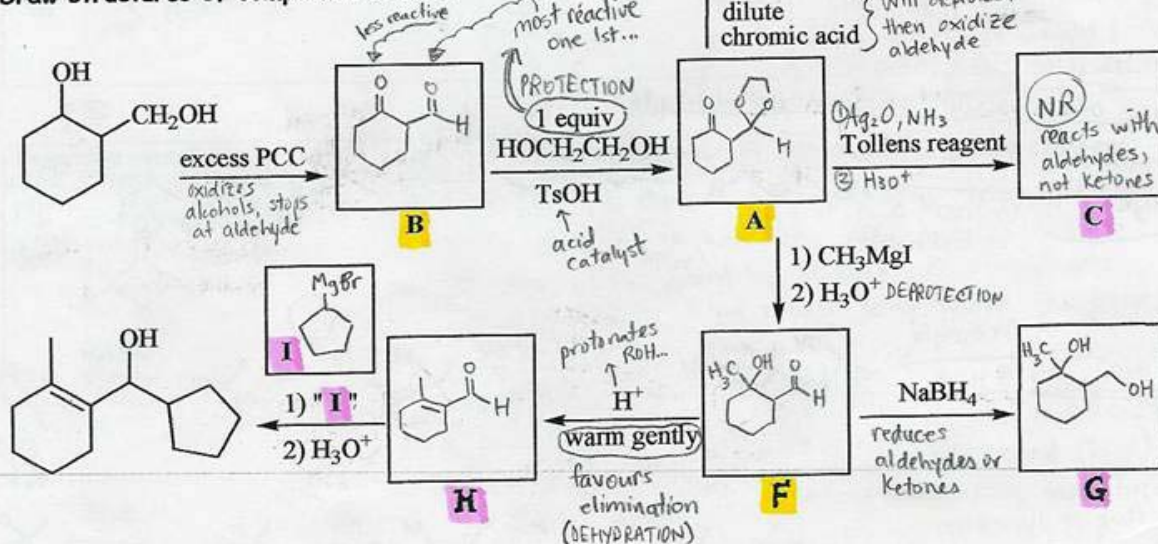 less reactive
most reactive
one 1st...
dilute
chromic acid
then oxidize
aldehyde
OH
CH2OH
excess PCC
oxidizes
alcohols, stops
at aldehyde
O
O
H
B
PROTECTION
1 equiv
HOCH2CH2OH
TsOH
acid
catalyst
O
O
O
H
A
① Ag2O, NH3
Tollens reagent
② H3O+
NR
reacts with
aldehydes,
not ketones
C
1) CH3MgI
2) H3O+ DEPROTECTION
OH
MgBr
I
1) "I"
2) H3O+
O
H
H
protonates
ROH...
H+
warm gently
favours
elimination
(DEHYDRATION)
H3C
OH
O
H
F
NaBH4
reduces
aldehydes or
ketones
H3C
OH
OH
G